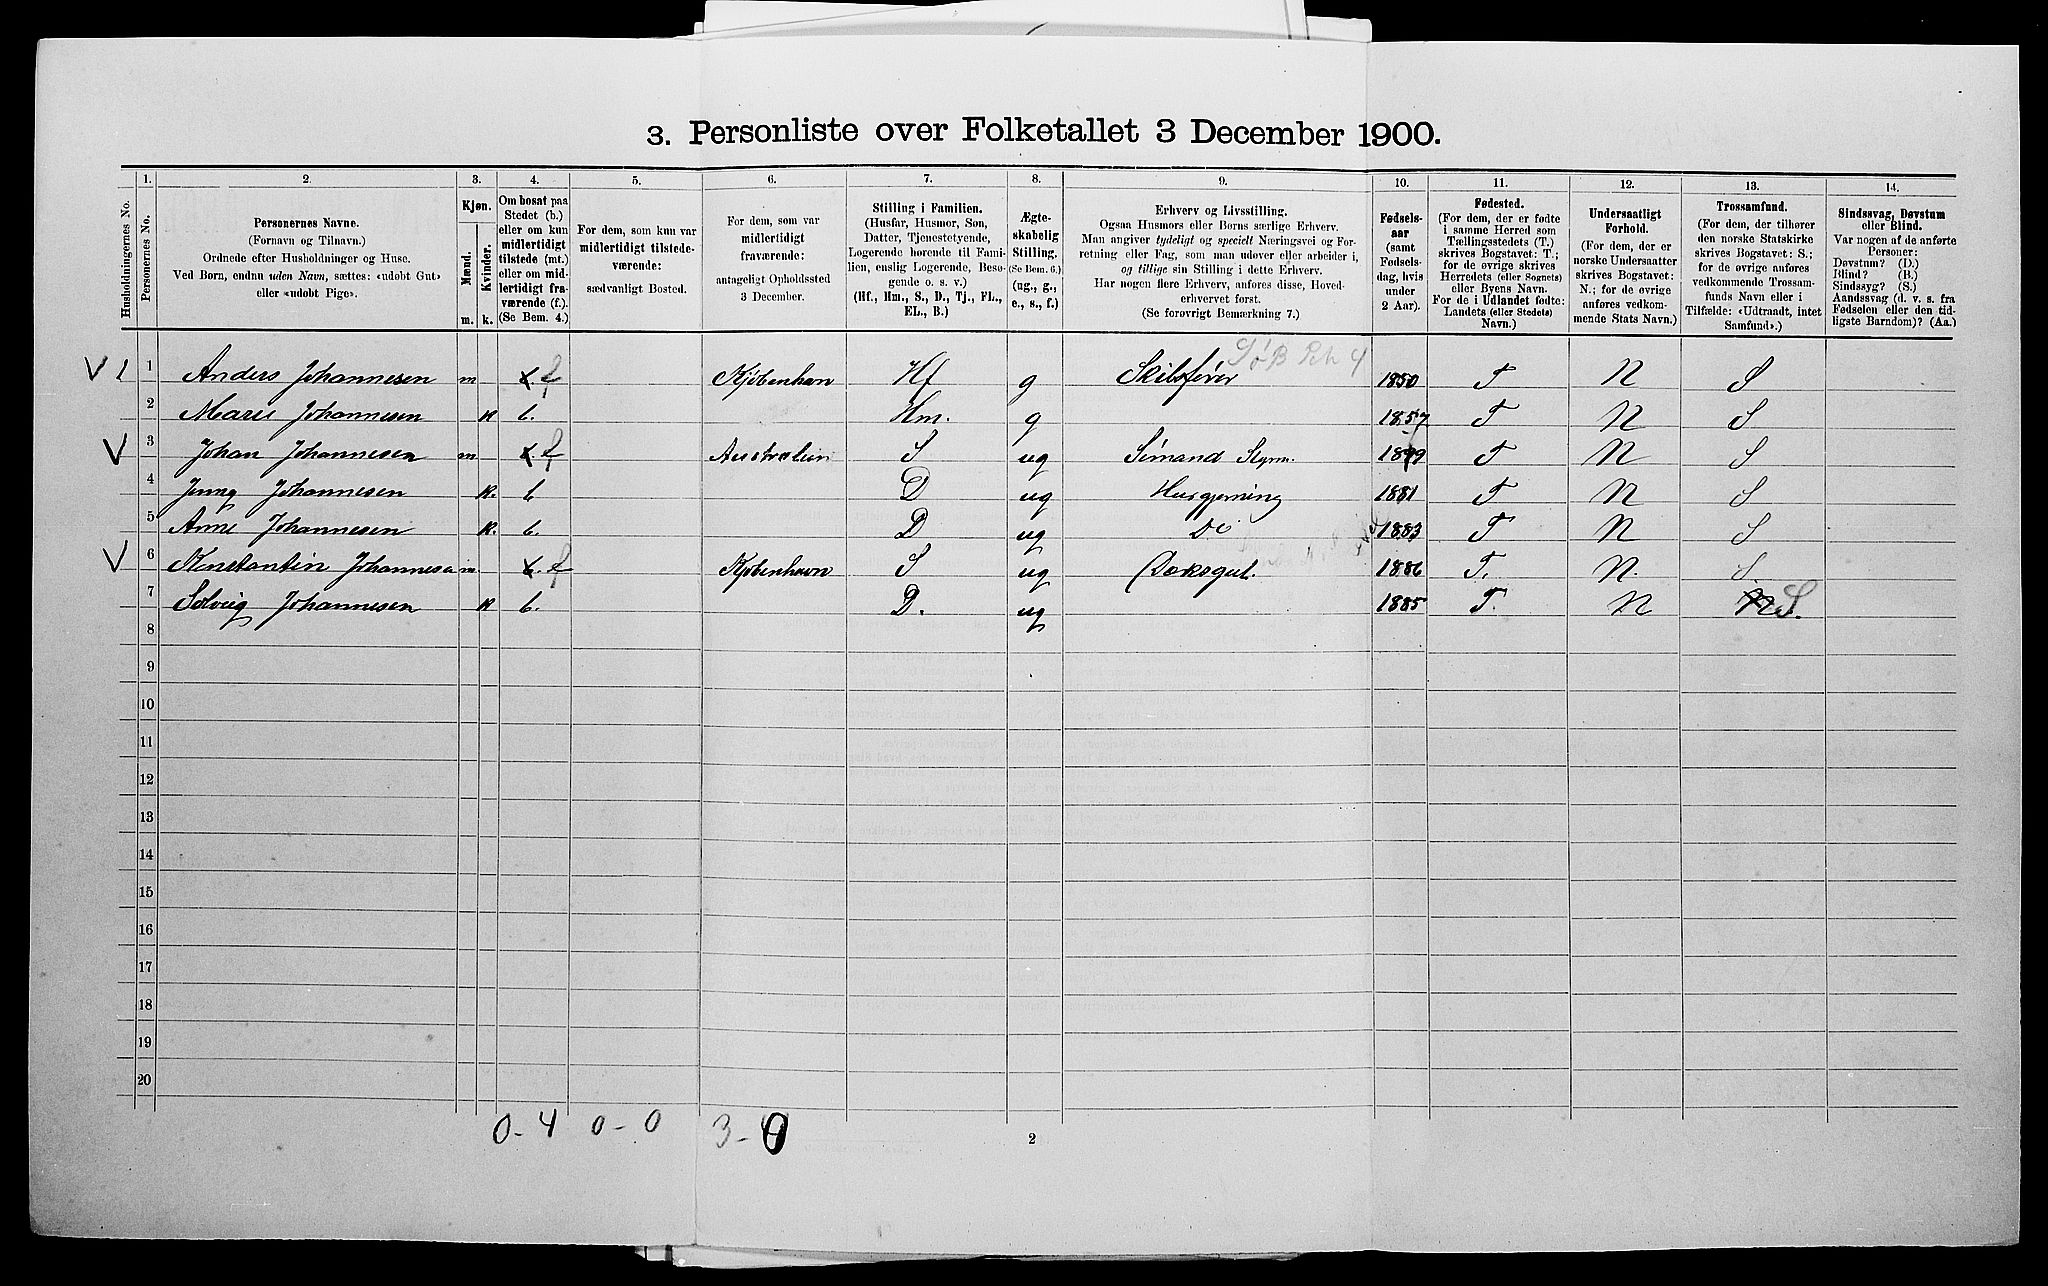 3. Personliste over Folketallet 3 December 1900.
Husholdningernes No.
1. Personernes No.
2. Personernes Navne.
(Fornavn og Tilnavn.)
Ordnede efter Husholdninger og Huse.
Ved Børn, endnu uden Navn, sættes: «udøbt Gut»
eller «udøbt Pige».
3. Kjøn.
Mænd. m.
Kvinder. k.
4. Om bosat paa
Stedet (b.)
eller om kun
midlertidigt
tilstede (mt.)
eller om mid-
lertidigt fra-
værende (f.).
(Se Bem. 4.)
5. For dem, som kun var
midlertidigt tilstede-
værende:
sædvanligt Bosted.
6. For dem, som var
midlertidigt
fraværende:
antageligt Opholdssted
3 December.
7. Stilling i Familien.
(Husfar, Husmor, Søn,
Datter, Tjenestetyende,
Logerende hørende til Fami-
lien, enslig Logerende, Besø-
gende o. s. v.)
(Hf., Hm., S., D., Tj., FL.,
EL., B.)
8. Ægte-
skabelig
Stilling.
(Se Bem. 6.)
(ug., g.,
e., s., f.)
9. Erhverv og Livsstilling.
Ogsaa Husmors eller Børns særlige Erhverv.
Man angiver tydeligt og specielt Næringsvei og For-
retning eller Fag, som man udøver eller arbeider i,
og tillige sin Stilling i dette Erhverv.
Har nogen flere Erhverv, anføres disse, Hoved-
erhvervet først.
(Se forøvrigt Bemærkning 7.)
10. Fødsels-
aar
(samt
Fødsels-
dag, hvis
under
2 Aar).
11. Fødested.
(For dem, der er fødte
i samme Herred som
Tællingsstedets (T.)
skrives Bogstavet: T.;
for de øvrige skrives
Herredets (eller Sognets)
eller Byens Navn.
For de i Udlandet fødte:
Landets (eller Stedets)
Navn.)
12. Undersaatligt
Forhold.
(For dem, der er
norske Undersaatter
skrives Bogstavet:
N.; for de øvrige
anføres vedkom-
mende Stats Navn.)
13. Trossamfund.
(For dem, der tilhører
den norske Statskirke
skrives Bogstavet: S.;
for de øvrige anføres
vedkommende Trossam-
funds Navn eller i
Tilfælde: «Udtraadt, intet
Samfund».)
14. Sindssvag, Døvstum
eller Blind.
Var nogen af de anførte
Personer:
Døvstum? (D.)
Blind? (B.)
Sindssyg? (S.)
Aandssvag (d. v. s. fra
Fødselen eller den tid-
ligste Barndom)? (Aa.)
V 1 1 Anders Johannesen m f Kjøbenhavn Hf g Skibsfører 1850 T N S
2 Marie Johannesen k b. Hm. g 1857 T N S
V 3 Johan Johannesen m f Australien S ug Sømand Styrm. 1879 T N S
4 Jenny Johannesen k. b D ug Husgjerning 1881 T N S
5 Anne Johannesen k. b. D ug Do 1883 T N S
V 6 Konstantin Johannesen m. b. f Kjøbenhavn S ug Dæksgut. 1886 T. N. S
7 Solveig Johannesen k b. D. ug 1885 T. N N S.
8
9
10
11
12
13
14
15
16
17
18
19
20
0-4 0-0 3-0
2